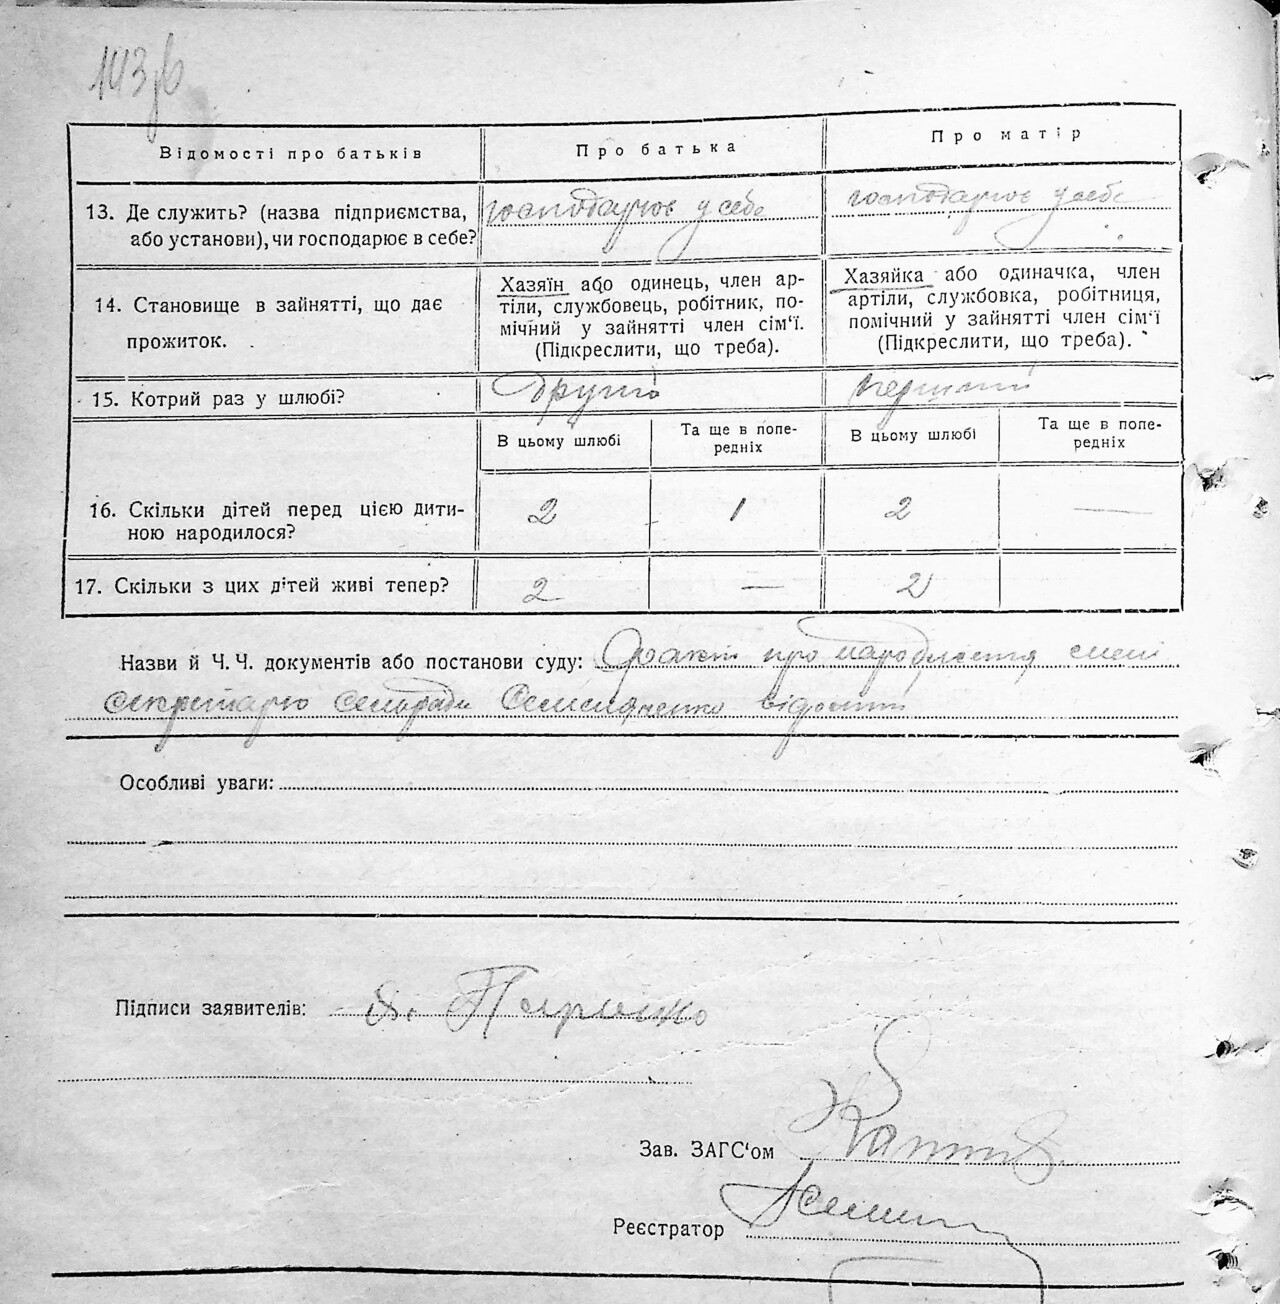 143зв
Відомості про батьків
Про батька
Про матір
13. Де служить? (назва підприємства,
або установи), чи господарює в себе?
господарює у себе
господарює у себе
14. Становище в зайнятті, що дає
прожиток.
Хазяїн або одинець, член ар-
тіли, службовець, робітник, по-
мічний у зайнятті член сім'ї.
(Підкреслити, що треба).
Хазяйка або одиначка, член
артіли, службовка, робітниця,
помічний у зайнятті член сім'ї
(Підкреслити, що треба).
15. Котрий раз у шлюбі?
другий
перший
В цьому шлюбі
Та ще в попе-
редніх
В цьому шлюбі
Та ще в попе-
редніх
16. Скільки дітей перед цією дити-
ною народилося?
2
1
2
—
17. Скільки з цих дітей живі тепер?
2
—
2
Назви й Ч. Ч. документів або постанови суду: Факт про народження мені
секретарю сельради відомий
Особливі уваги:
Підписи заявителів:
Зав. ЗАГС'ом
Реєстратор